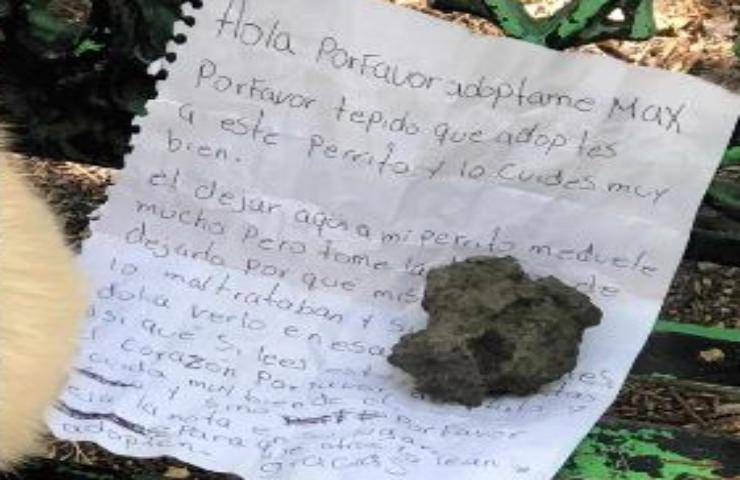 Hola Porfavor adoptame Max
Porfavor tepido que adoptes
a este perrito y lo cuides muy
bien.
el dejar aqui a mi perrito meduele
mucho pero tome la de
dejarlo por que mis
lo maltrataban y
dolia verlo en esa
asi que si lees es
corazon Porfavor
cuida muy bien
y sino Porfavor
la nota en
para que otros lean
adopten.
gracias